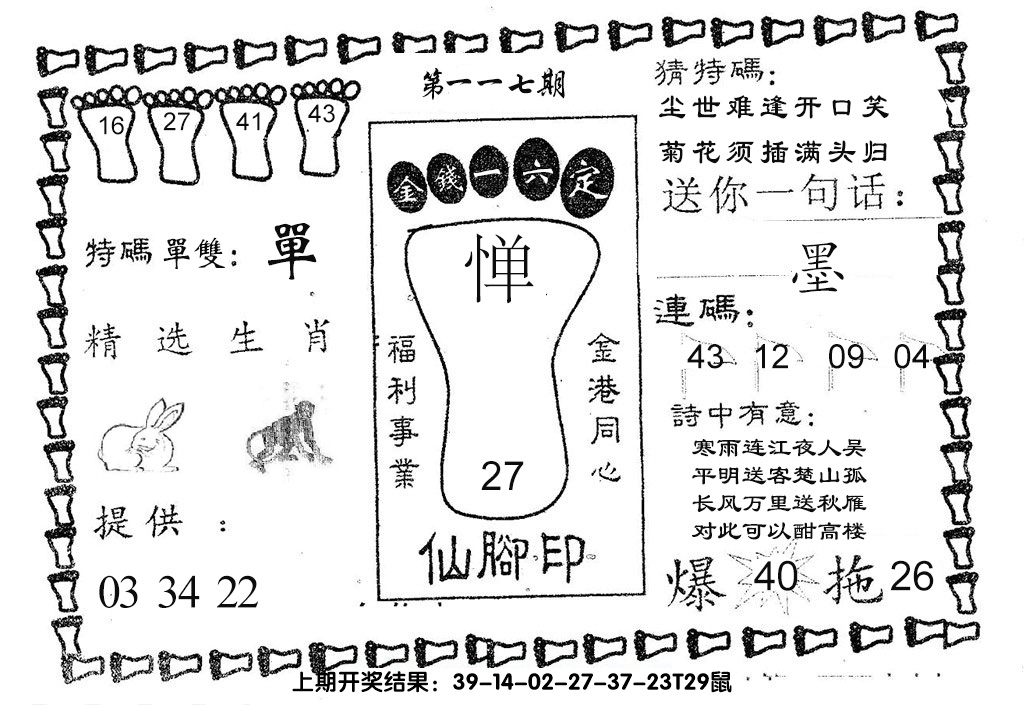 第一一七期
16 27 41 43
特碼單雙：單
精选生肖
提供：
03 34 22
金錢一六定
惮
福利事業
金港同心
27
仙腳印
猜特碼：
尘世难逢开口笑
菊花须插满头归
送你一句话：
墨
連碼：
43 12 09 04
詩中有意：
寒雨连江夜人吴
平明送客楚山孤
长风万里送秋雁
对此可以酣高楼
爆 40 拖 26
上期开奖结果：39-14-02-27-37-23T29鼠